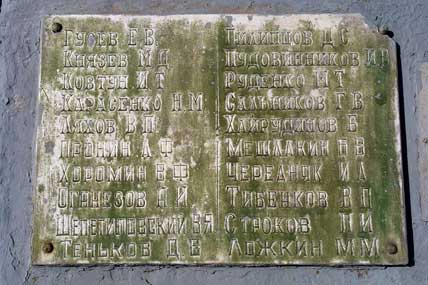 Гусев Е В
Князев М Д
Ковтун И Т
Карабенко Н М
Ляхов В П
Леднин А Ф
Хоромин В Ф
Огнезов П И
Шепетиловский В Я
Теньков Д Е
Пилипцов Д С
Пудовинников И Г
Руденко И Т
Сальников Г В
Хайрудинов Б
Мешалкин П В
Чередняк И А
Тибенков В П
Строков П И
Ложкин М М